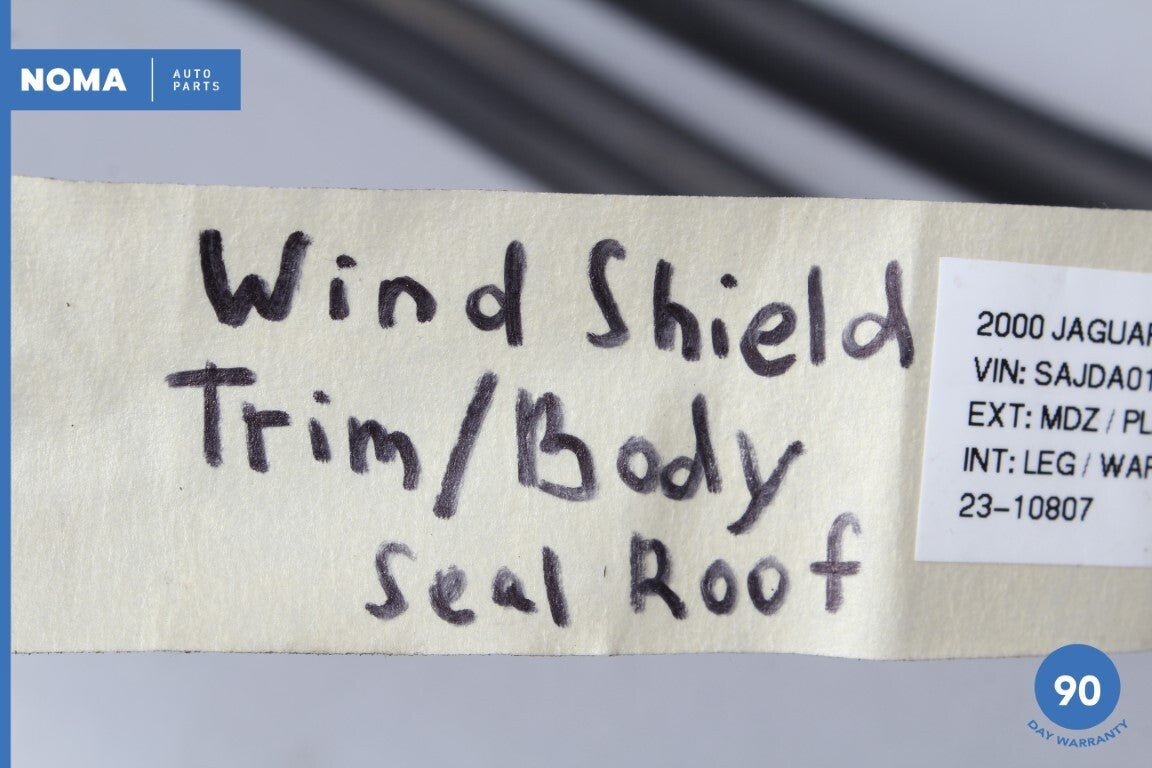 NOMA
AUTO
PARTS
Wind Shield
Trim/Body
Seal Roof
2000 JAGUAR
VIN: SAJDA01
EXT: MDZ / PL
INT: LEG / WAR
23-10807
90
DAY WARRANTY